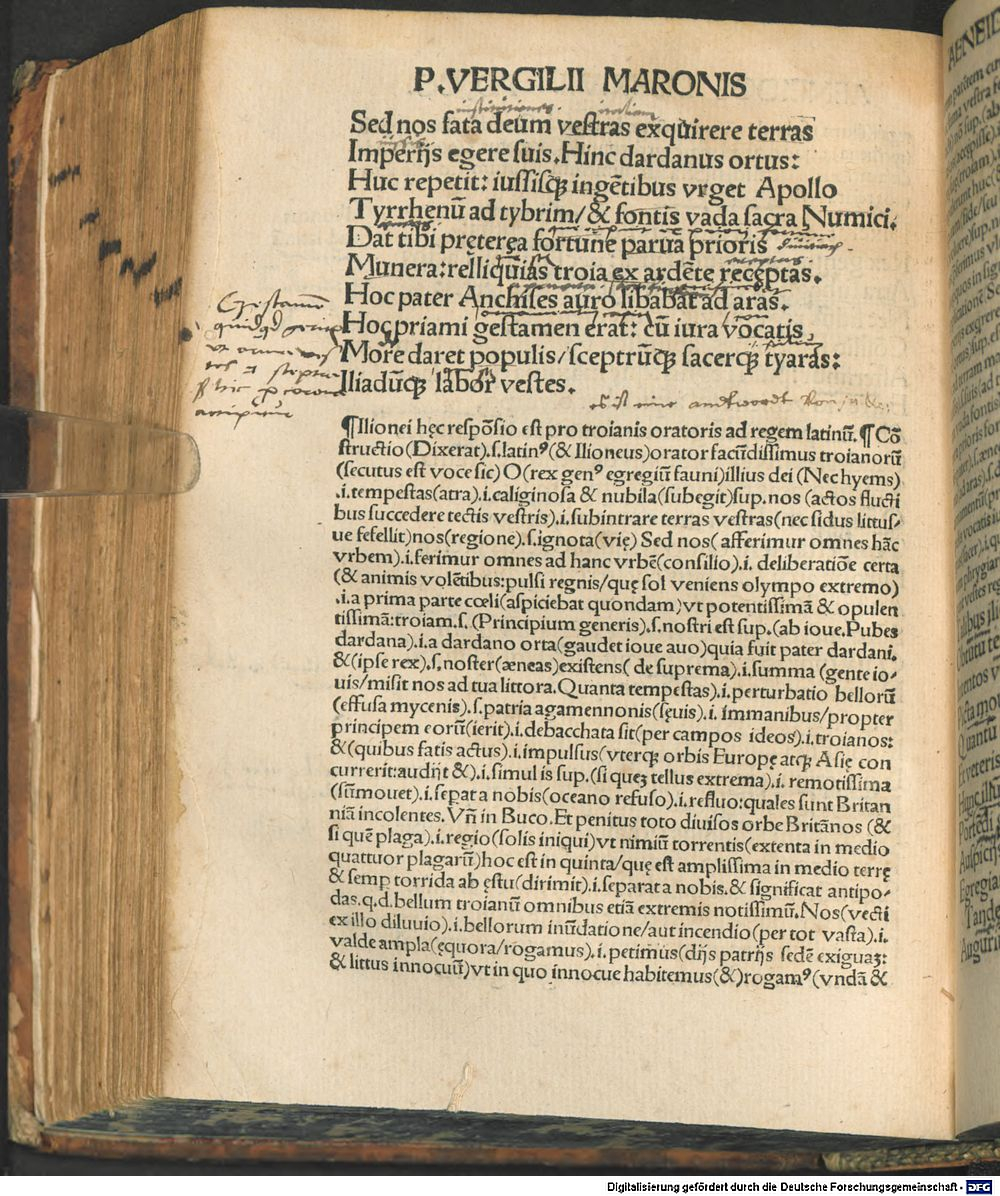 P. VERGILII MARONIS
Sed nos fata deum vestras exquirere terras
Imperijs egere suis. Hinc dardanus ortus:
Huc repetit: iussisqꝫ ingētibus vrget Apollo
Tyrrhenū ad tybrim/& fontis vada sacra Numici.
Dat tibi pręteręa fortunę parua prioris
Munera: relliquias troia ex ardēte receptas.
Hoc pater Anchises auro libabat ad aras.
Hoc priami gestamen erat: cū iura vocatis
More daret populis/sceptrūqꝫ sacerqꝫ tyaras:
Iliadūqꝫ labor vestes.
¶Ilionei hęc respōsio est pro troianis oratoris ad regem latinū. ¶Cō
structio (Dixerat).s.latinꝰ(& Ilioneus)orator facūdissimus troianorū
(secutus est voce sic) O(rex genꝰ egregiū fauni)illius dei (Nec hyems)
.i.tempestas(atra).i.caliginosa & nubila(subegit)sup.nos (actos flucti
bus succedere tectis vestris).i.subintrare terras vestras(nec sidus littus⸗
ue fefellit)nos(regione).s.ignota(vię) Sed nos( afferimur omnes hāc
vrbem).i.ferimur omnes ad hanc vrbē(consilio).i. deliberatiōe certa
(& animis volētibus:pulsi regnis/quę sol veniens olympo extremo)
.i.a prima parte cœli(aspiciebat quondam)vt potentissimā & opulen
tissimā:troiam.s. (Principium generis).s.nostri est sup.(ab ioue.Pubes
dardana).i.a dardano orta(gaudet ioue auo)quia fuit pater dardani.
&(ipse rex).s.noster(æneas)existens( de suprema).i.summa (gente io⸗
uis/misit nos ad tua littora.Quanta tempestas).i.perturbatio bellorū
(effusa mycenis).s.patria agamennonis(sęuis).i. immanibus/propter
principem eorū(ierit).i.debacchata sit(per campos ideos).i.troianos:
&(quibus fatis actus).i.impulsus(vterqꝫ orbis Europę atqꝫ Asię con
currerit:audijt &).i.simul is sup.(si queꝫ tellus extrema).i. remotissima
(sūmouet).i.separat a nobis(oceano refuso).i.refluo:quales sunt Britan
niā incolentes. Vn̄ in Buco. Et penitus toto diuisos orbe Britānos (&
si quē plaga).i.regio(solis iniqui)vt nimiū torrentis(extenta in medio
quattuor plagarū)hoc est in quinta/quę est amplissima in medio terrę
& semp torrida ab ęstu(dirimit).i.separat a nobis.& significat antipo⸗
das.q.d.bellum troianū omnibus etiā extremis notissimū.Nos(vecti
ex illo diluuio).i.bellorum inūdatione/aut incendio(per tot vasta).i.
valde ampla(ęquora/rogamus).i. petimus(dijs patrijs sedē exiguaꝫ:
& littus innocuū)vt in quo innocue habitemus(&)rogamꝰ(vndā &
Digitalisierung gefördert durch die Deutsche Forschungsgemeinschaft - DFG